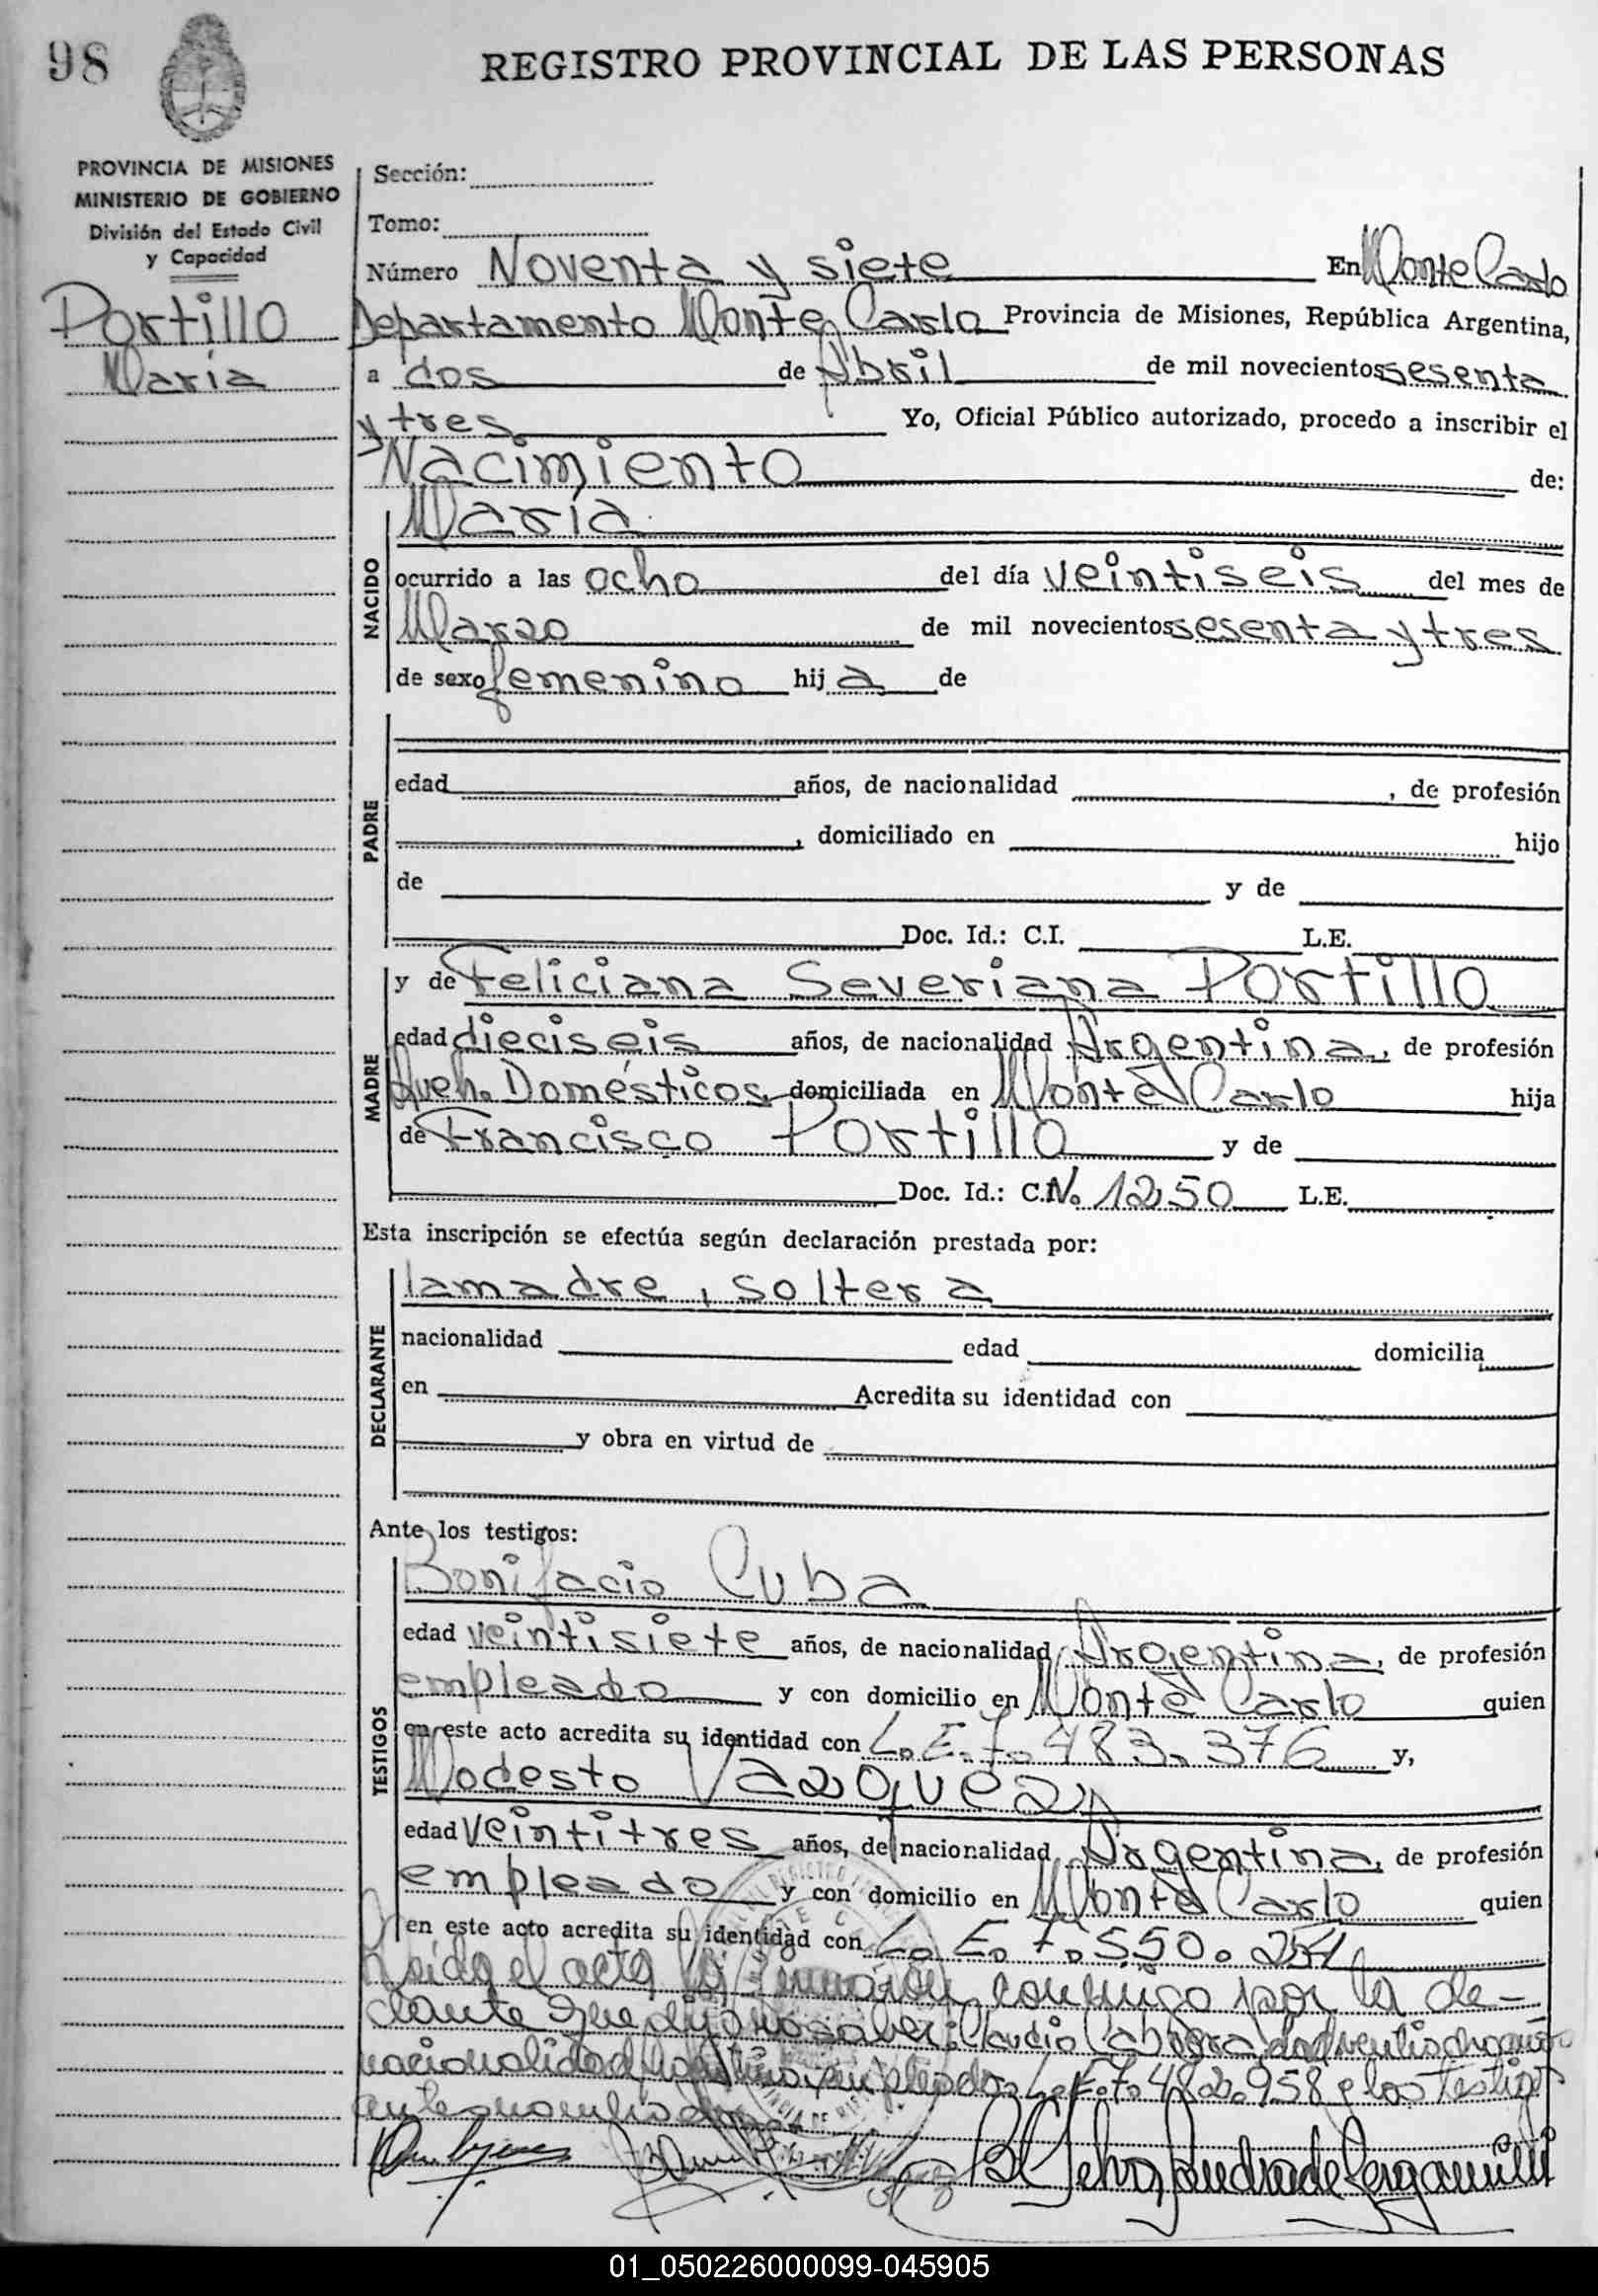 98
REGISTRO PROVINCIAL DE LAS PERSONAS
PROVINCIA DE MISIONES
MINISTERIO DE GOBIERNO
División del Estado Civil
y Capacidad
Portillo
María
Sección:
Tomo:
Número Noventa y siete En Monte Carlo
Departamento Monte Carlo Provincia de Misiones, República Argentina,
a dos de Abril de mil novecientos sesenta
y tres Yo, Oficial Público autorizado, procedo a inscribir el
Nacimiento de:
NACIDO
María
ocurrido a las ocho del día veintiseis del mes de
Marzo de mil novecientos sesenta y tres
de sexo femenino hij a de
PADRE
edad años, de nacionalidad , de profesión
, domiciliado en hijo
de y de
Doc. Id.: C.I. L.E.
MADRE
y de Feliciana Severiana Portillo
edad dieciseis años, de nacionalidad Argentina, de profesión
Queh. Domésticos, domiciliada en Monte Carlo hija
de Francisco Portillo y de
Doc. Id.: C.N. 1250 L.E.
Esta inscripción se efectúa según declaración prestada por:
DECLARANTE
la madre, soltera
nacionalidad edad domicilia
en Acredita su identidad con
y obra en virtud de
Ante los testigos:
TESTIGOS
Bonifacio Cuba
edad veintisiete años, de nacionalidad Argentina, de profesión
empleado y con domicilio en Monte Carlo quien
en este acto acredita su identidad con L. E. 7. 483. 376 y,
Modesto Vazquez
edad veintitres años, de nacionalidad Argentina, de profesión
empleado y con domicilio en Monte Carlo quien
en este acto acredita su identidad con L. E. 7. 550. 251
Leída el acta la firmaron conmigo por la de-
clarante que dijo no saber: Claudio Cabrera,
nacionalidad Argentina, empleado, L. E. 7. 482. 958 y los testigos
antenombrados
01_050226000099-045905